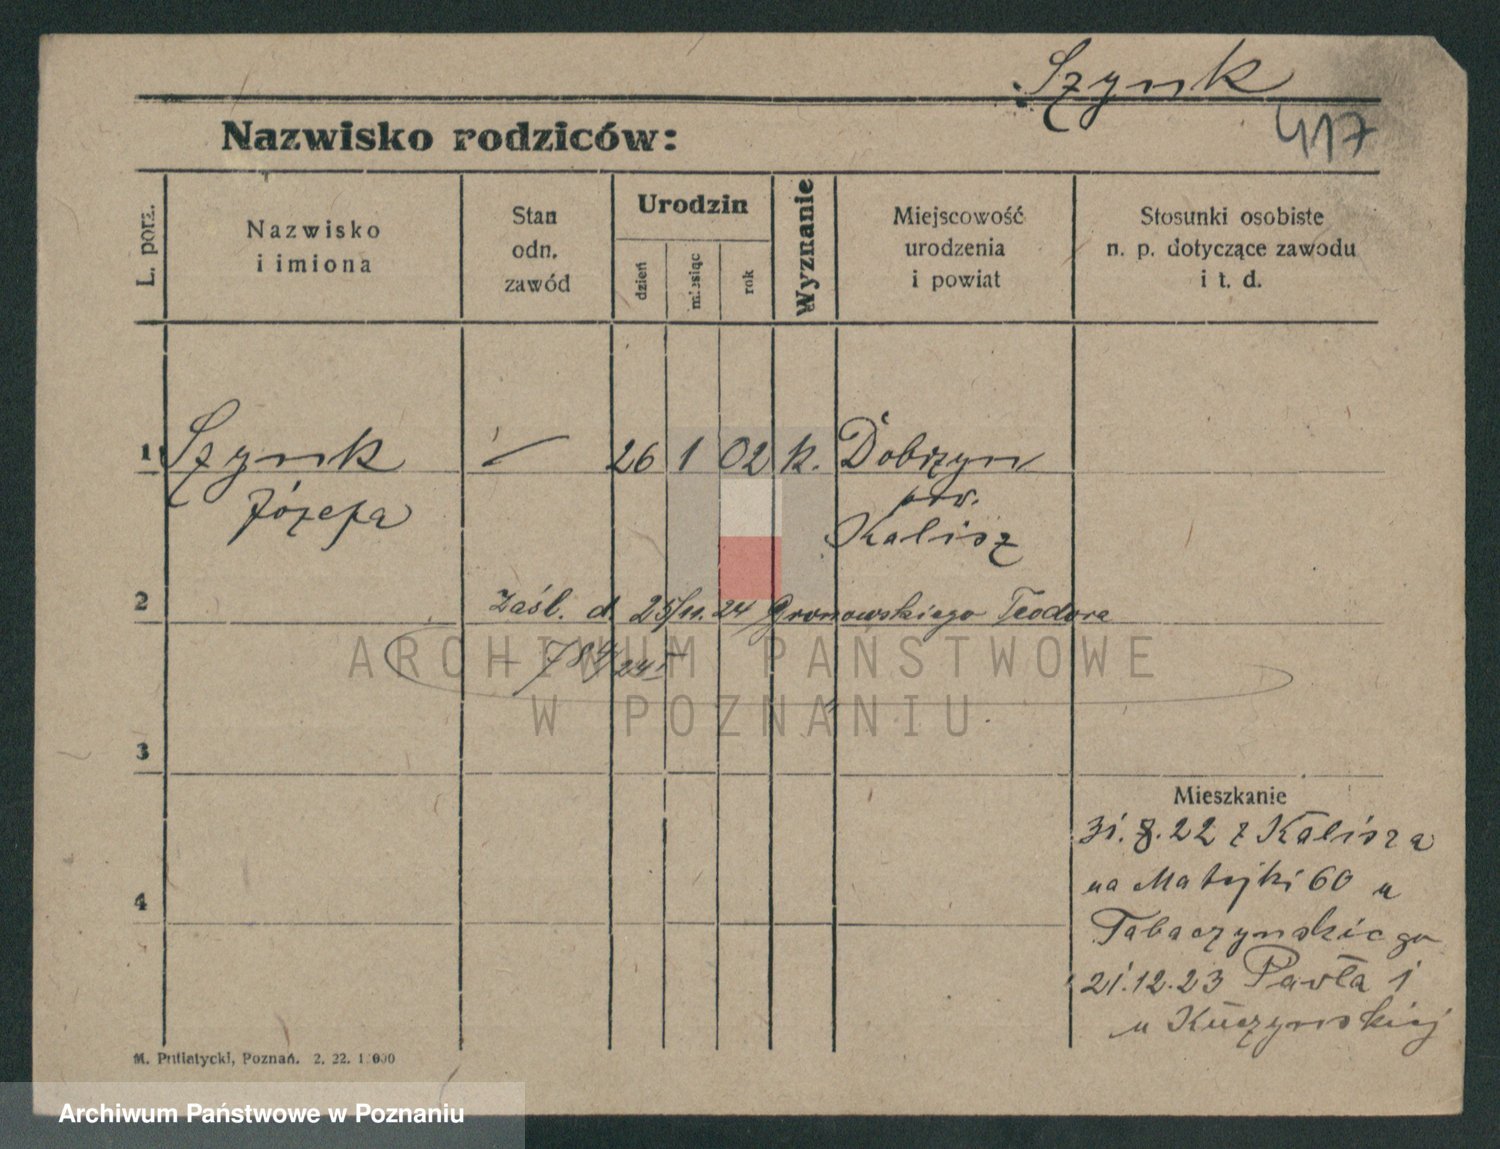 Szynk
417
Nazwisko rodziców:
L. porz.
Nazwisko
i imiona
Stan
odn.
zawód
Urodzin
dzień
miesiąc
rok
Wyznanie
Miejscowość
urodzenia
i powiat
Stosunki osobiste
n. p. dotyczące zawodu
i t. d.
1 Szynk — 26 1 02 k. Dobrzyn
Józefa pow.
Kalisz
2 Zaśl. d 25/11. 24 Gronowskiego Teodora
784/24
ARCHIWUM PAŃSTWOWE
W POZNANIU
3
Mieszkanie
31. 8. 22 z Kalisza
na Matejki 60 u
4
Tabaczynskiego
21. 12. 23 Pawła 1
u Kuczynskiej
M. Putiatycki, Poznań. 2. 22. 1 000
Archiwum Państwowe w Poznaniu